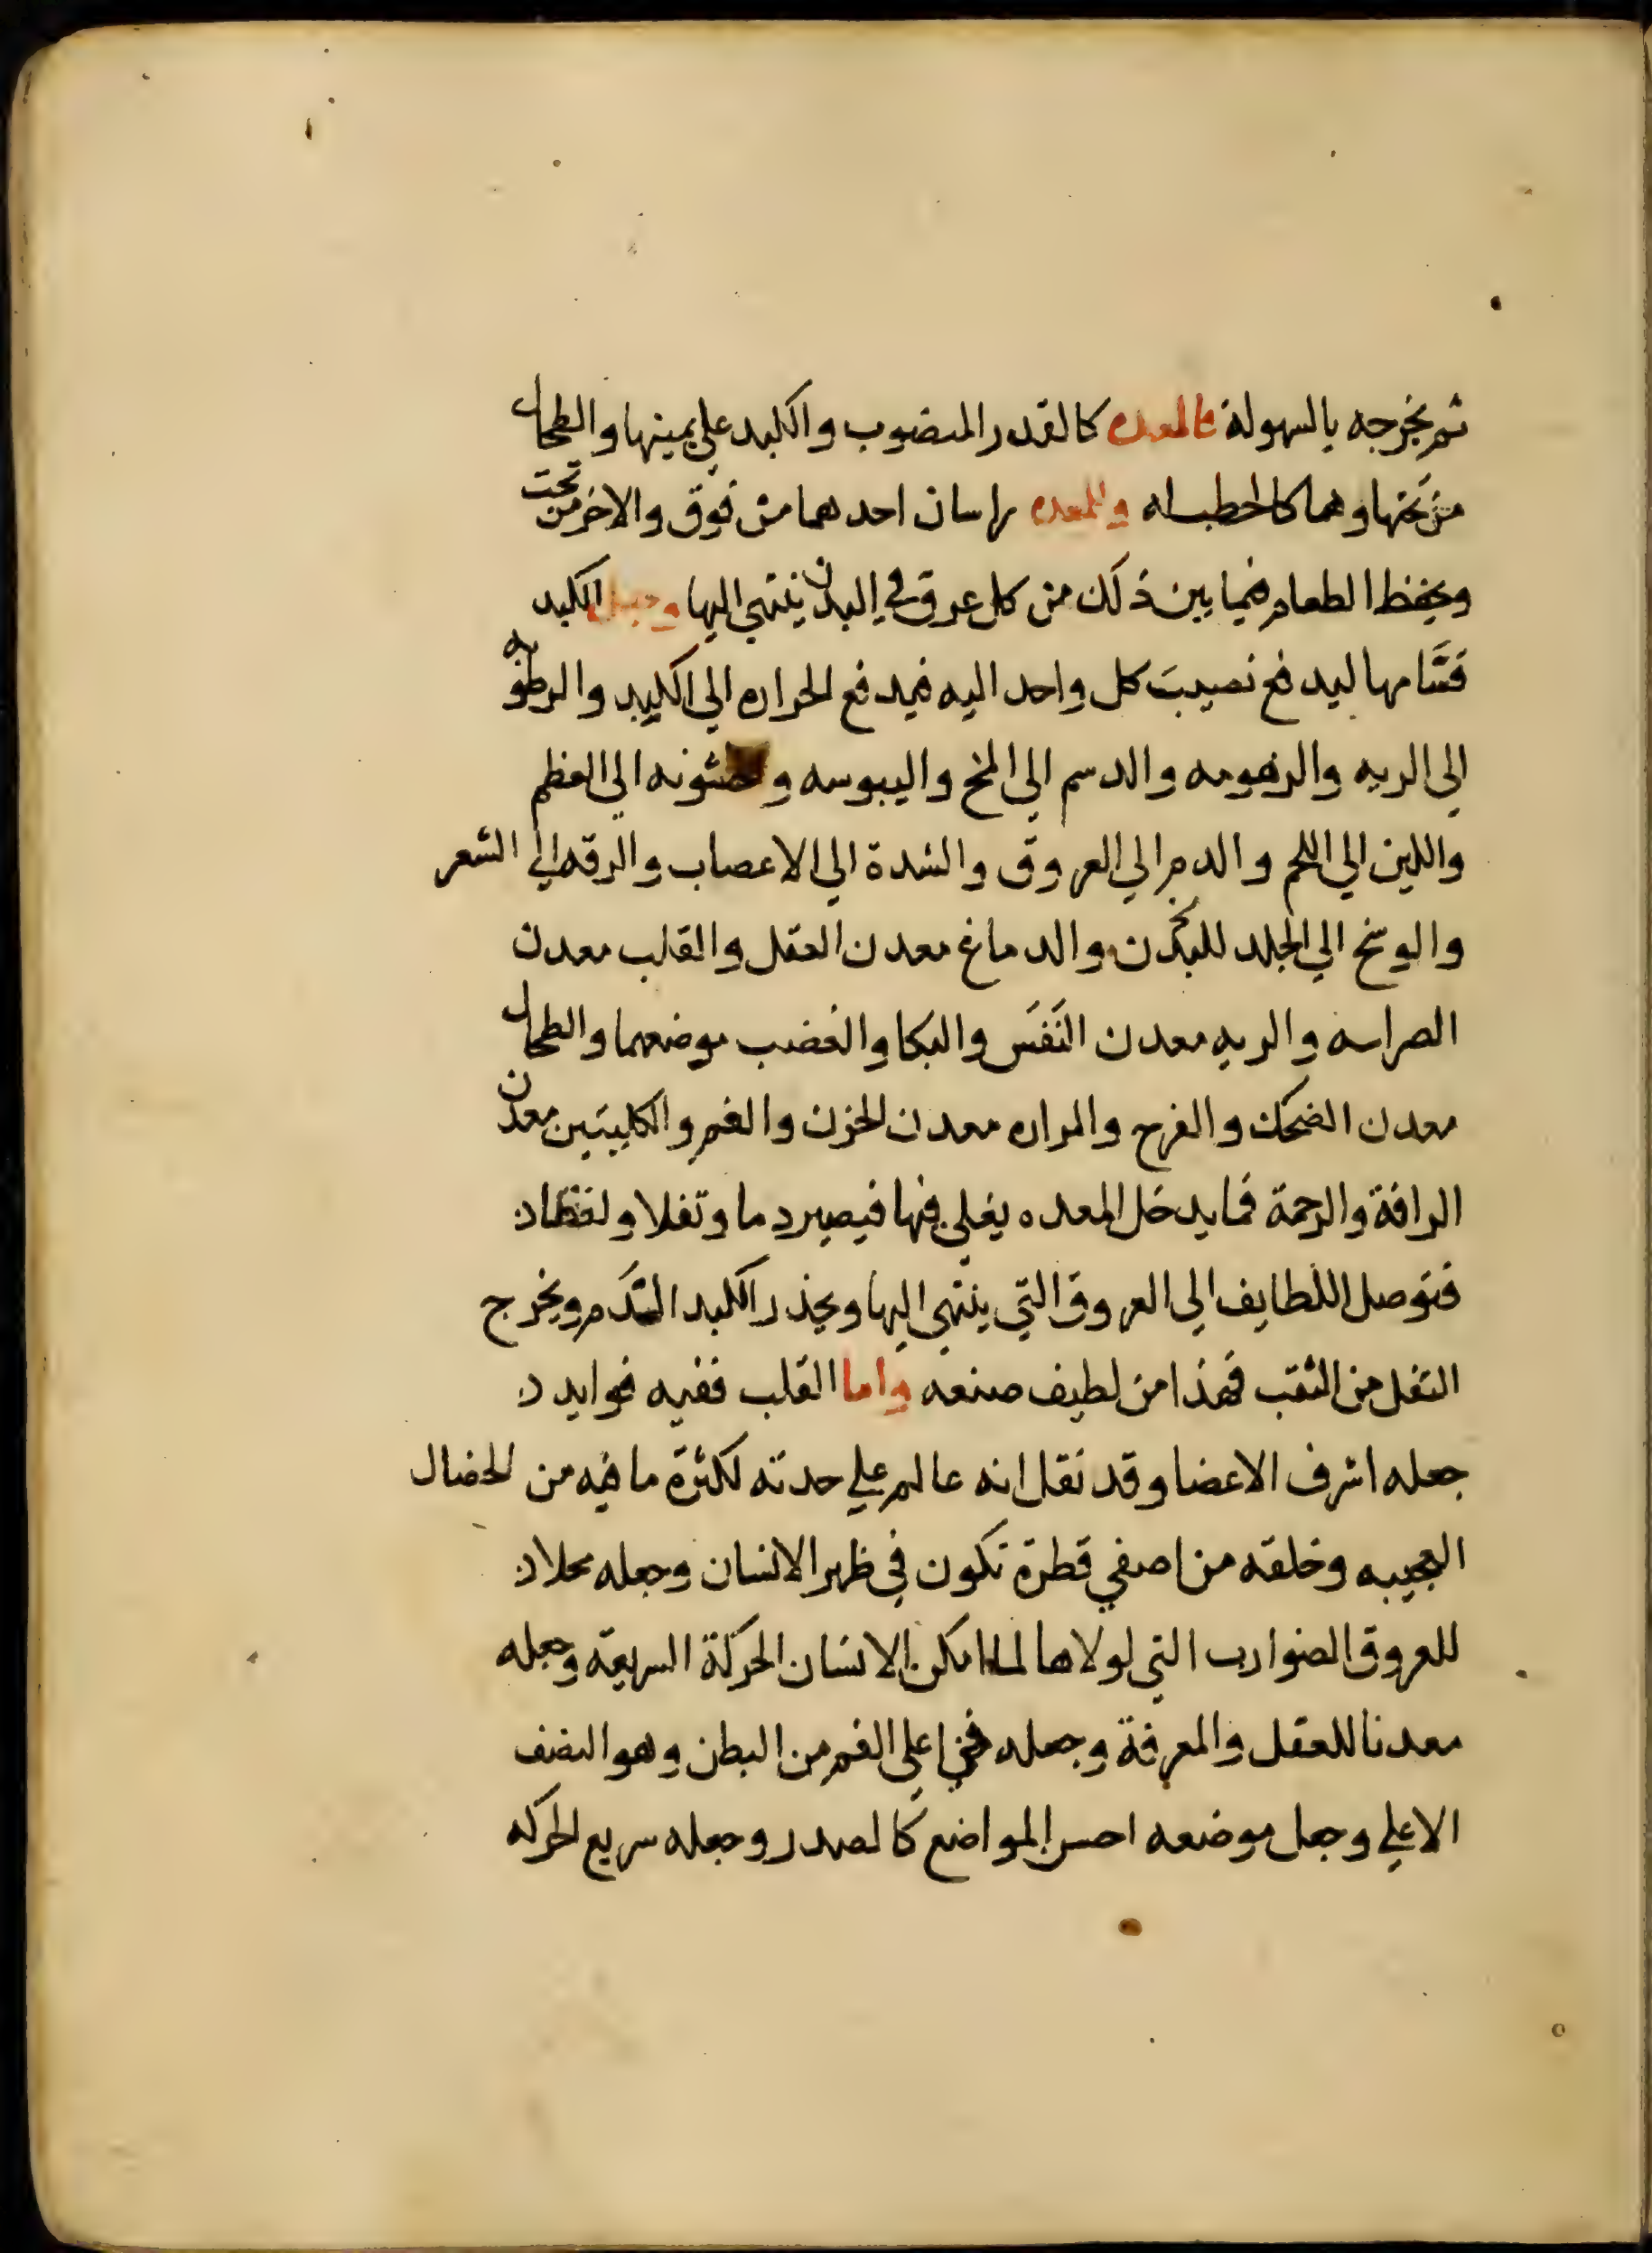 ثم يخرجه بالسهولة فالمعده كالقدر المنصوب والكبد على يمينها والطحال
من تحتها وهما كالحطب له والمعده راسان احدهما من فوق والاخر من تحت
ويحفظ الطعام فيما بين ذلك من كل عرق في البدن ينتهي اليها وجعل الكبد
قسَّامها ليدفع نصيبَ كل واحد اليه فيدفع الحراره الي الكبد والرطوبه
الي الريه والزهومه والدسم الي المخ واليبوسه والخشونه الي العظم
واللين الي اللحم والدم الي العروق والشدة الي الاعصاب والرقه الي الشعر
والوسخ الي الجلد للبدن والدماغ معدن العقل والقلب معدن
الصرامه والريه معدن النَفَس والبكا والغضب موضعهما والطحال
معدن الضحك والفرح والمراره معدن الحزن والغم والكليتين معدن
الرافة والرحمة فما يدخل المعده يغلي فيها فيصير دما وثفلا ولفظا
فتوصل اللطايف الي العروق التي ينتهي اليها ويجذر الكبد الدم ويخرج
الثفل من الثقب فهذا من لطيف صنعه واما القلب ففيه فوايد
جعله اشرف الاعضا وقد نقل انه عالم علي حدته لكثرة ما فيه من الخصال
العجيبه وخلقه من اصفي قطرة تكون في ظهر الانسان وجعله محلا
للعروق الضوارب التي لولاها لما امكن الانسان الحركة السريعة وجعله
معدنا للعقل والمعرفة وجعله في اعلي الفم من البطن وهو النصف
الاعلي وجعل موضعه احسن المواضع كالصدر وجعله سريع الحركه